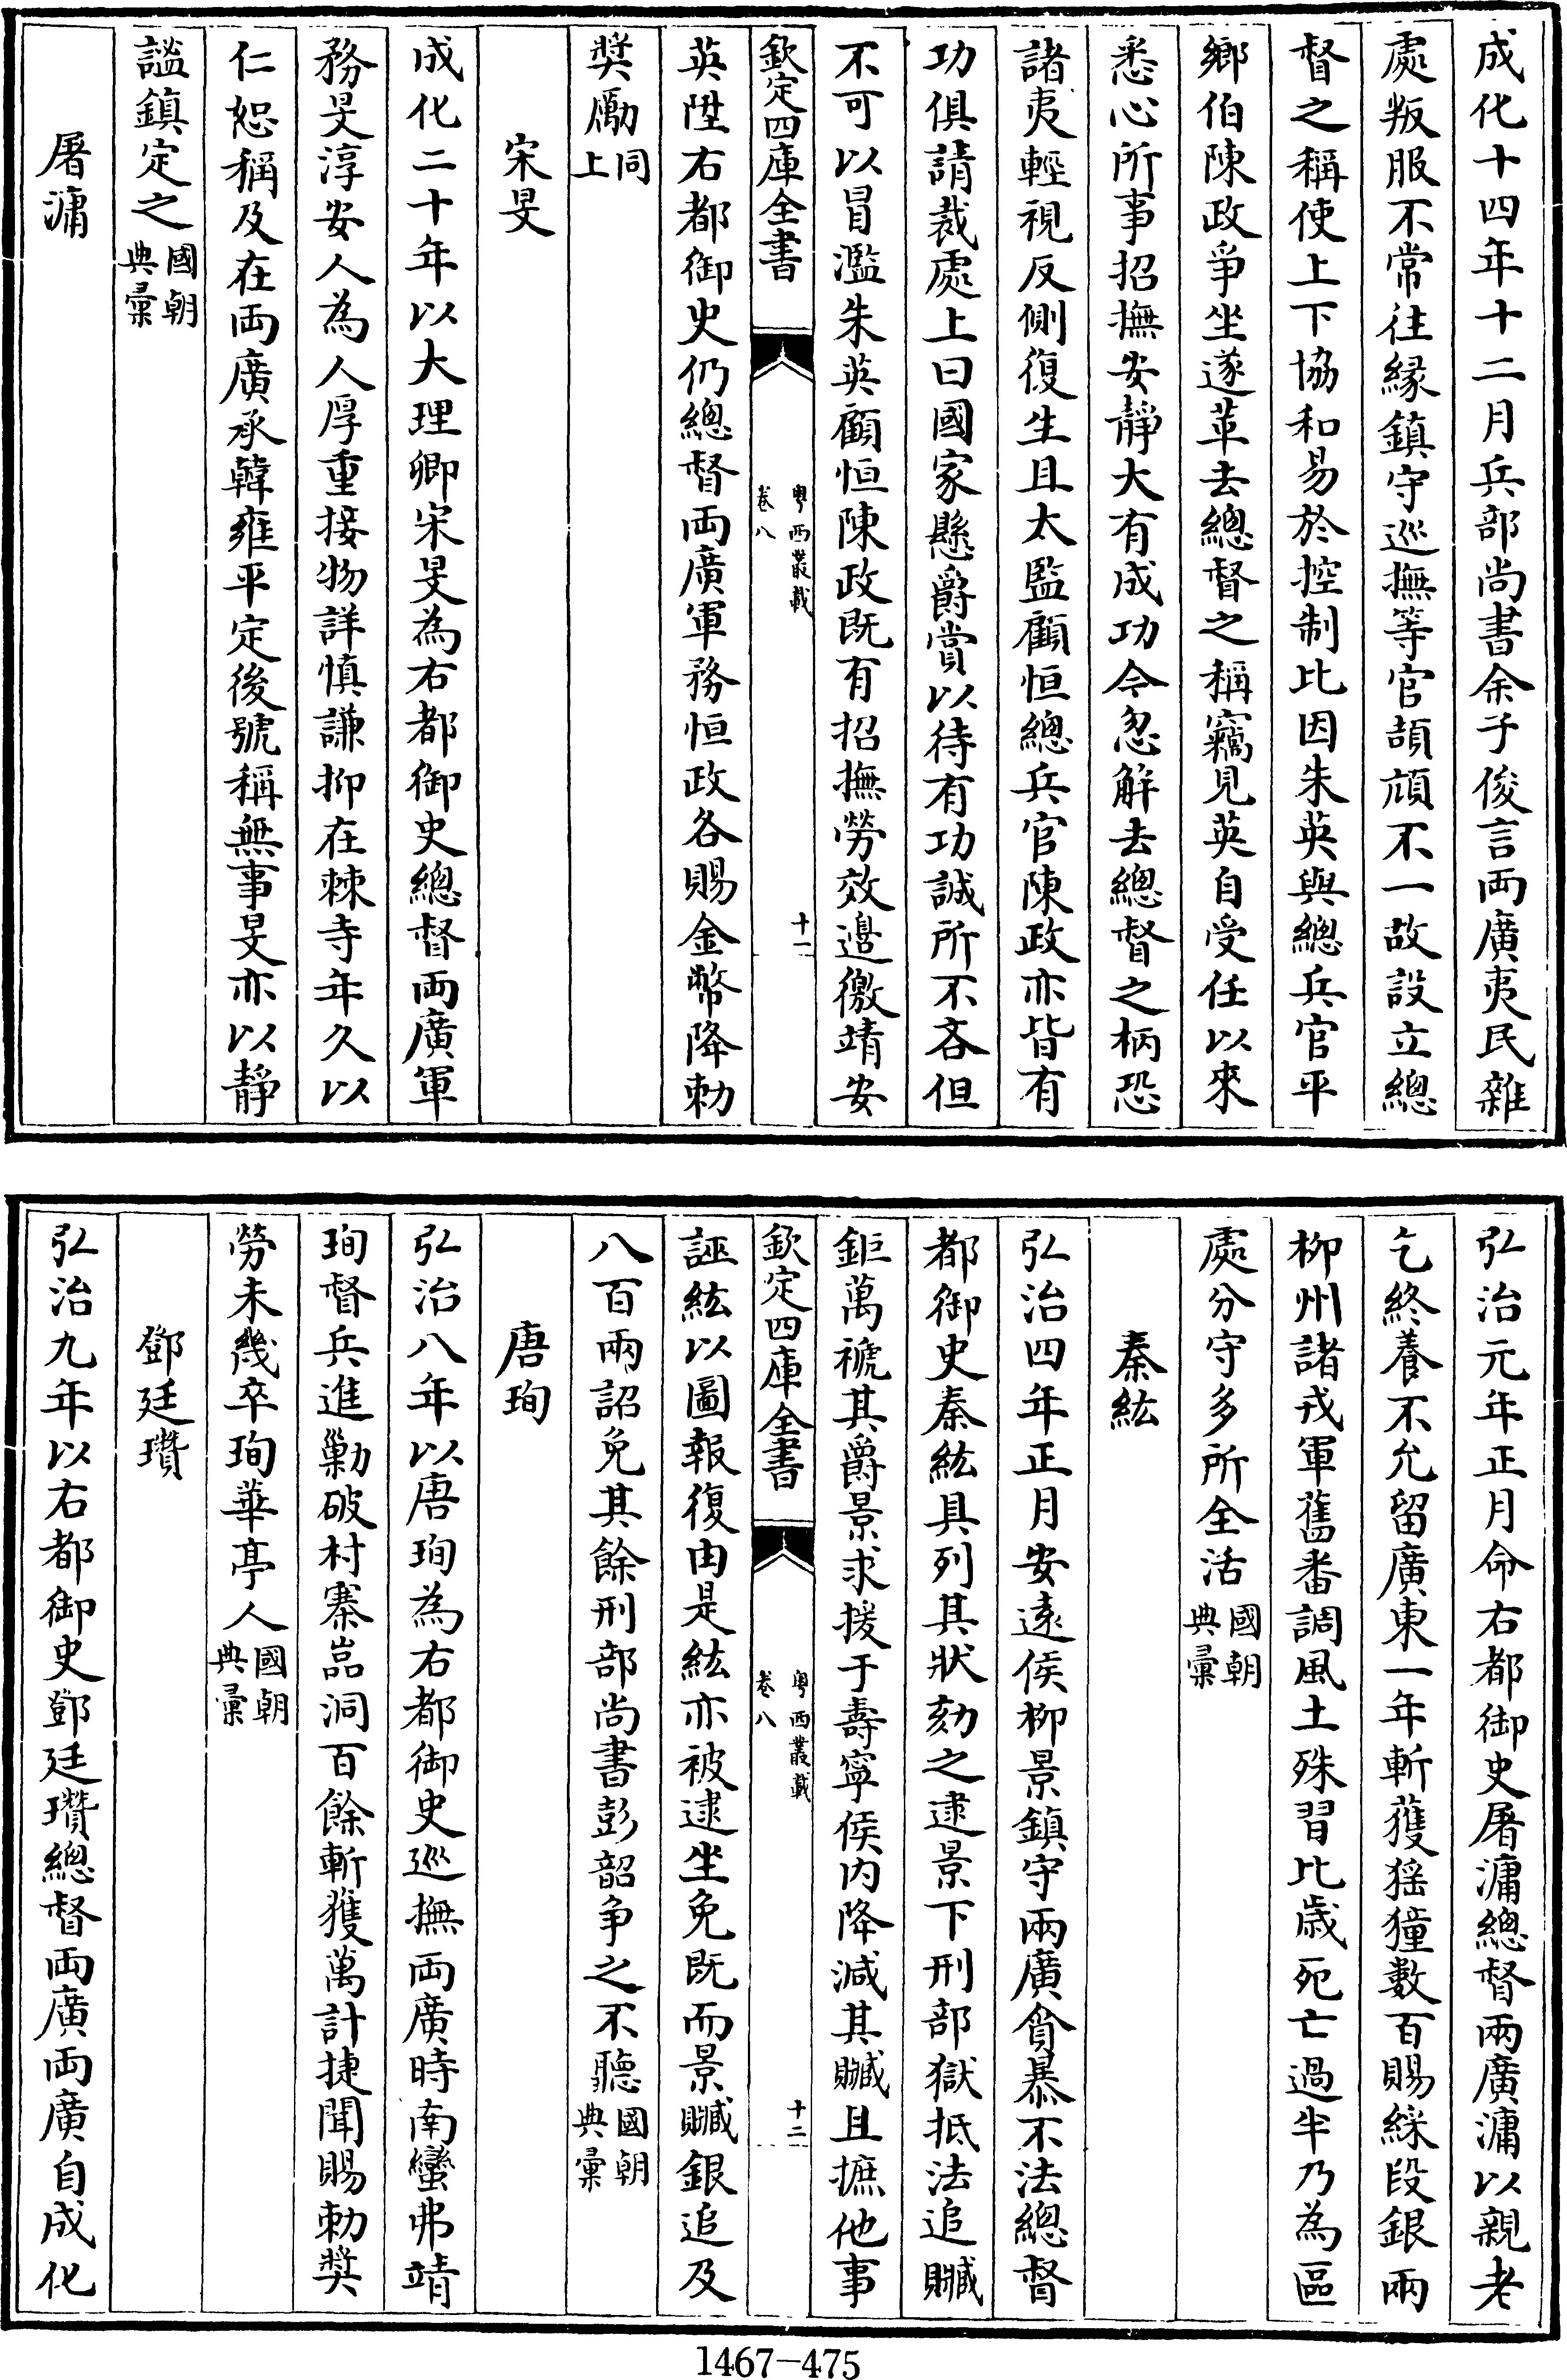 成化十四年十二月兵部尚書余子俊言両廣夷民雜
處叛服不常往縁鎮守巡撫等官頡頏不一故設立總
督之稱使上下協和易於控制比因朱英與總兵官平
鄉伯陳政爭坐遂革去總督之稱竊見英自受任以來
悉心所事招撫安靜大有成功今忽解去總督之柄恐
諸夷輕視反側復生且太監顧恒總兵官陳政亦皆有
功俱請裁處上曰國家懸爵賞以待有功誠所不吝但
不可以冒濫朱英顧恒陳政既有招撫勞效邉徼靖安
欽定四庫全書
粤西叢載
卷八
十一
英陞右都御史仍總督両廣軍務恒政各賜金幣降勅
奬勵同上
宋旻
成化二十年以大理卿宋旻為右都御史總督両廣軍
務旻淳安人為人厚重接物詳慎謙抑在棘寺年久以
仁恕稱及在両廣承韓雍平定後號稱無事旻亦以靜
謐鎮定之國朝典彙
屠滽
弘治元年正月命右都御史屠滽總督兩廣滽以親老
乞終養不允留廣東一年斬獲猺獞數百賜綵段銀兩
柳州諸戎軍舊番調風土殊習比歲死亡過半乃為區
處分守多所全活國朝典彙
秦紘
弘治四年正月安遠侯柳景鎮守兩廣貪暴不法總督
都御史秦紘具列其狀劾之逮景下刑部獄抵法追贓
鉅萬褫其爵景求援于壽寧侯内降減其贓且摭他事
欽定四庫全書
粤西叢載
卷八
十二
誣紘以圖報復由是紘亦被逮坐免既而景贓銀追及
八百兩詔免其餘刑部尚書彭韶争之不聽國朝典彙
唐珣
弘治八年以唐珣為右都御史巡撫両廣時南蠻弗靖
珣督兵進勦破村寨嵓洞百餘斬獲萬計捷聞賜勅奬
勞未幾卒珣華亭人國朝典彙
鄧廷瓚
弘治九年以右都御史鄧廷瓚總督両廣両廣自成化
1467-475